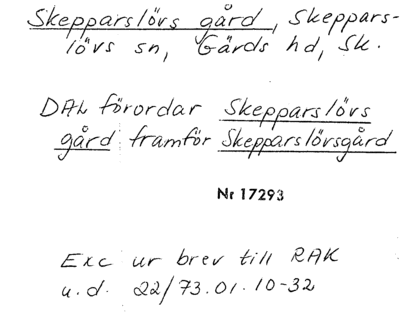 Skepparslövs gård, Skeppars-
lövs sn, Gärds hd, Sk.
DAL förordar Skepparslövs
gård framför Skepparslövsgård
Nr 17293
Exc ur brev till RAK
u.d. 22/73.01.10-32